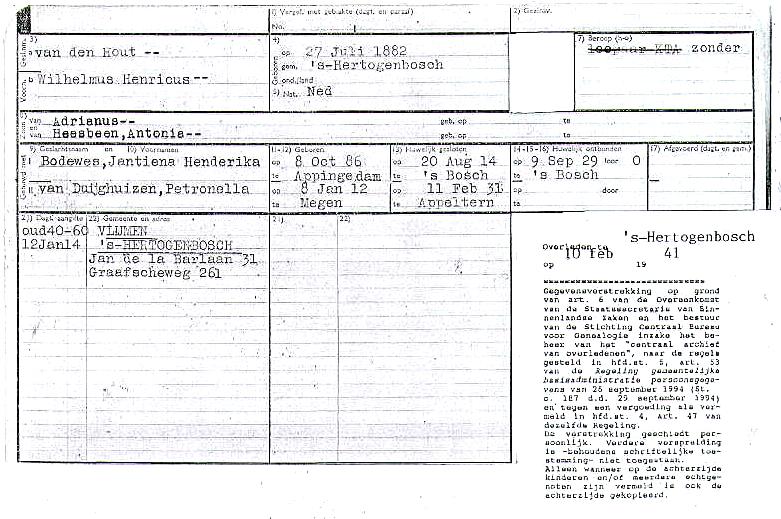 1) Vergel. met gebakte (dagt. en paraaf)
2) Gezinsv.
No.
3)
a van den Hout --
b Wilhelmus Henricus --
4)
op 27 Juli 1882
gem. 's-Hertogenbosch
ond./land
5) Nat. Ned
7) Beroep (h-o)
leeraar KMA zonder
van Adrianus--
geb. op te
en
van Heesbeen,Antonia--
geb. op te
9) Geslachtsnaam en 10) Voornamen
11-12) Geboren
13) Huwelijk gesloten
14-15-16) Huwelijk ontbonden
17) Afgevoerd (dagt. en gem.)
I Bodewes,Jantiena Henderika
op 8 Oct 86
op 20 Aug 14
op 9 Sep 29 door O
te Appingedam
te 's Bosch
te 's Bosch
II van Duijghuizen,Petronella
op 8 Jan 12
op 11 Feb 31
op door
te Megen
te Appeltern
te
21) Dagt. aangifte 22) Gemeente en adres
21)
22)
oud40-60 VLIJMEN
12Jan14 's-HERTOGENBOSCH
Jan de la Barlaan 31
Graafscheweg 261
's-Hertogenbosch
Overleden te
10 feb 41
op 19
Gegevensverstrekking op grond
van art. 6 van de Overeenkomst
van de Staatssecretaris van Bin-
nenlandse Zaken en het bestuur
van de Stichting Centraal Bureau
voor Genealogie inzake het be-
heer van het "centraal archief
van overledenen", naar de regels
gesteld in hfd.st. 5, art. 53
van de Regeling gemeentelijke
basisadministratie persoonsgege-
vens van 26 september 1994 (St.
c. 187 d.d. 29 september 1994)
en tegen een vergoeding als ver-
meld in hfd.st. 4, art. 47 van
dezelfde Regeling.
De verstrekking geschiedt per-
soonlijk. Verdere verspreiding
is -behoudens schriftelijke toe-
stemming- niet toegestaan.
Alleen wanneer op de achterzijde
kinderen en/of meerdere echtge-
noten zijn vermeld is ook de
achterzijde gekopieerd.